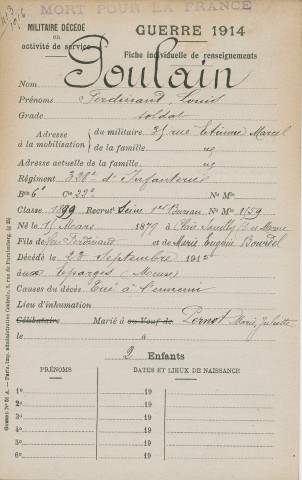 MORT POUR LA FRANCE
MILITAIRE DÉCÉDÉ
en
activité de service
GUERRE 1914
Fiche individuelle de renseignements
Nom Poulain
Prénoms Ferdinand, Louis
Grade soldat
Adresse à la mobilisation
du militaire 25 rue Etienne Marcel
de la famille
Adresse actuelle de la famille
Régiment 320e d'Infanterie
Bon 6e Cie 22e No Mle
Classe 1899 Recrut. Seine 1er Bureau No Mle 1/59
Né le 15 Mars 1879 à
Fils de feu Ferdinand et de Marie Eugénie Bourdel
Décédé le 28 Septembre 191
aux Eparges (Meuse)
Causes du décès Tué à l'ennemi
Lieu d'inhumation
Célibataire Marié à ou Veuf de Pernot Marie Juliette
le à
2 Enfants
PRÉNOMS DATES ET LIEUX DE NAISSANCE
1o 19
2o 19
3o 19
4o 19
5o 19
6o 19